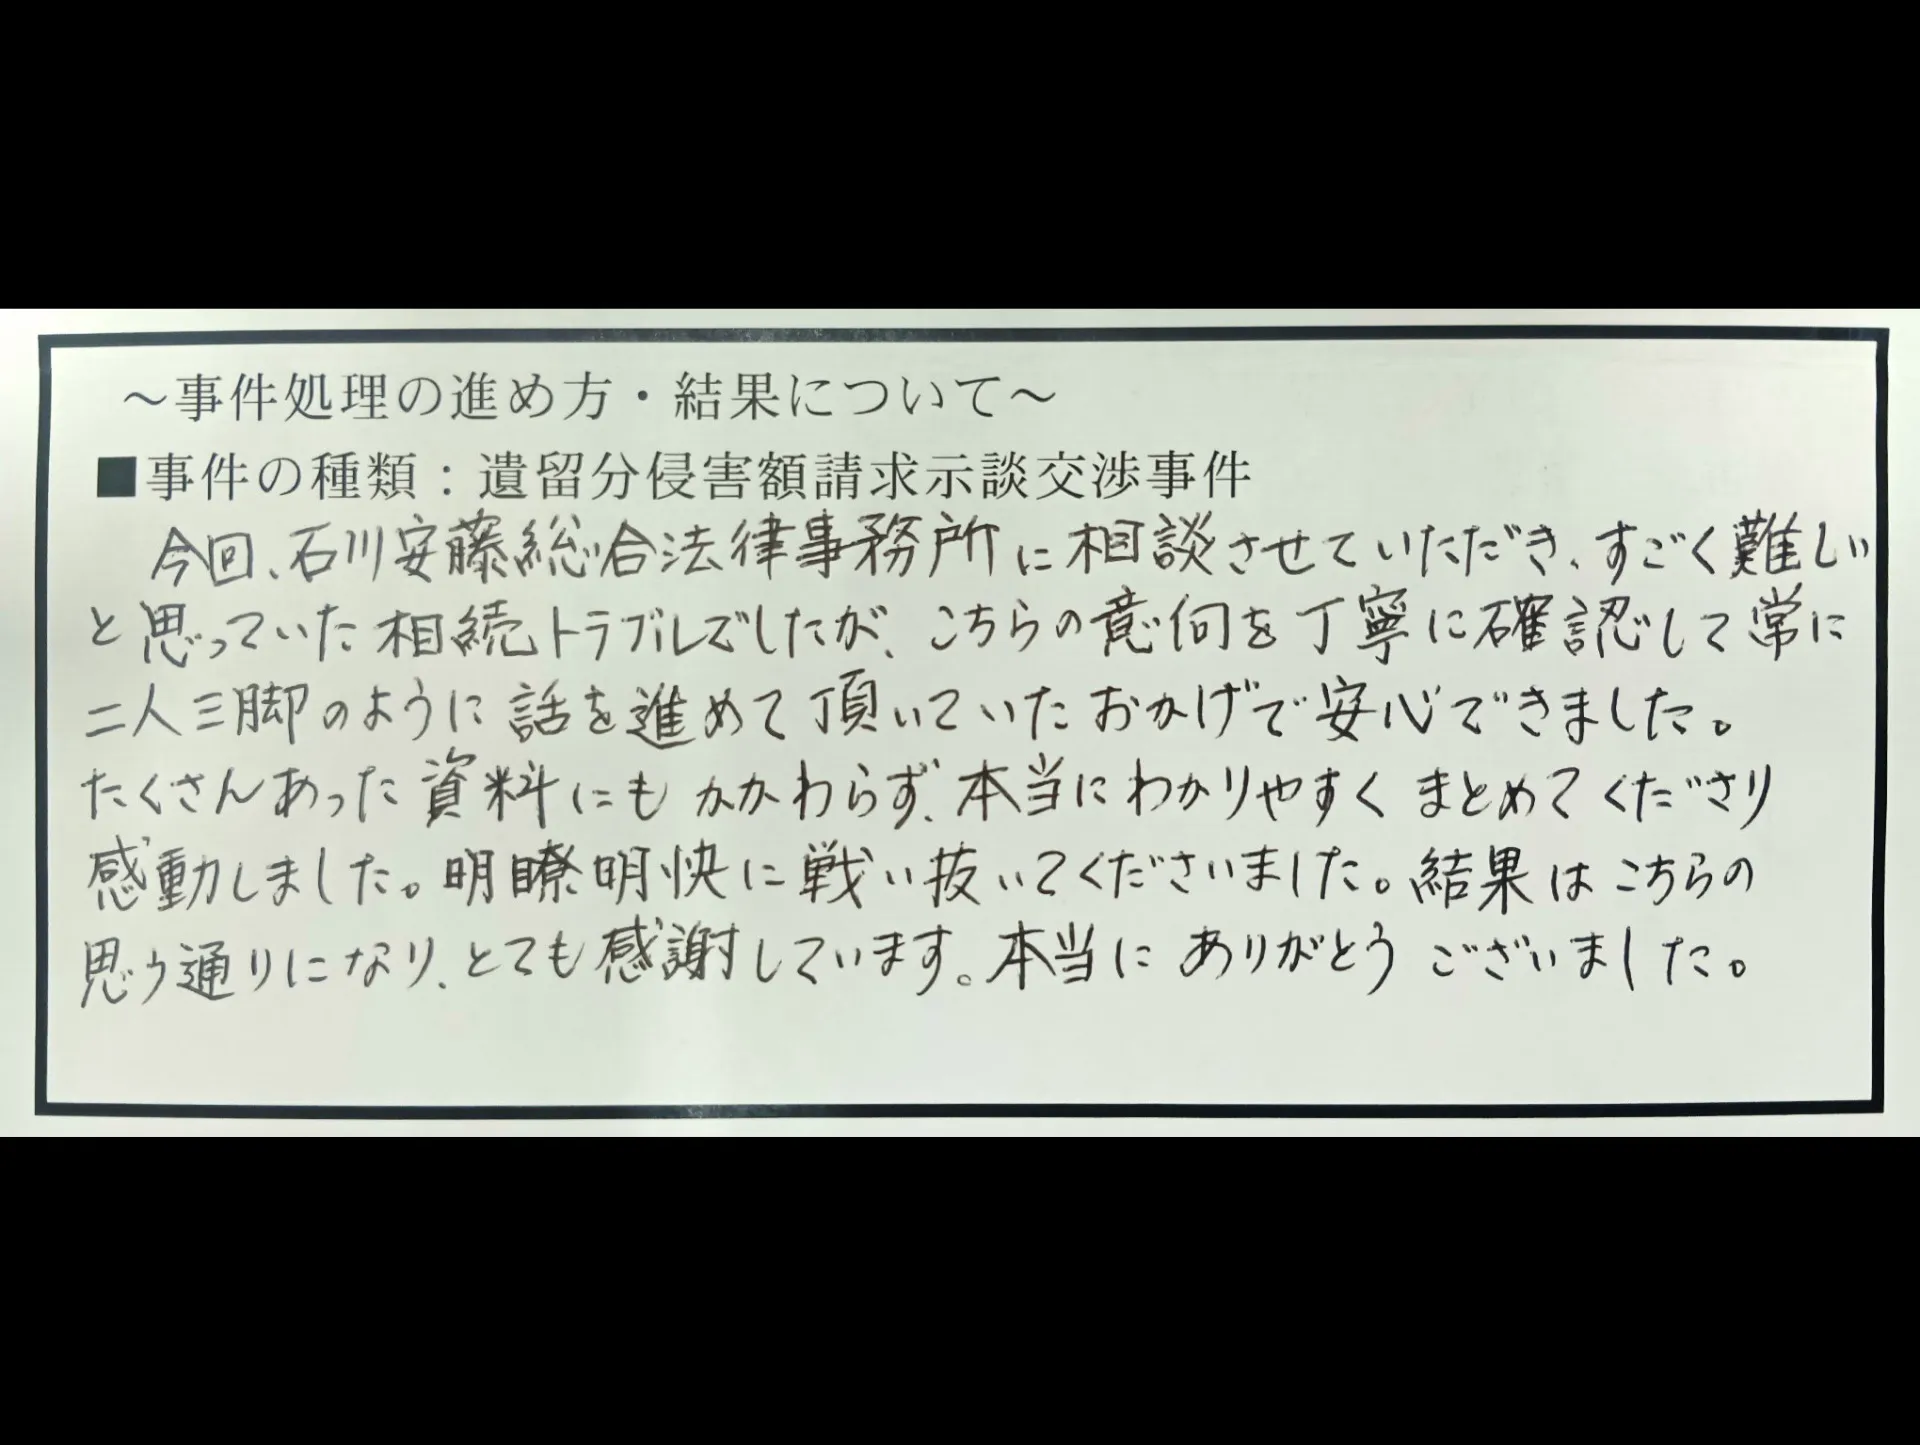 ～事件処理の進め方・結果について～
■事件の種類：遺留分侵害額請求示談交渉事件
今回、石川安藤総合法律事務所に相談させていただき、すごく難しい
と思っていた相続トラブルでしたが、こちらの意向を丁寧に確認して常に
二人三脚のように話を進めて頂いていたおかげで安心できました。
たくさんあった資料にもかかわらず、本当にわかりやすくまとめてくださり
感動しました。明瞭明快に戦い抜いてくださいました。結果はこちらの
思う通りになり、とても感謝しています。本当にありがとうございました。